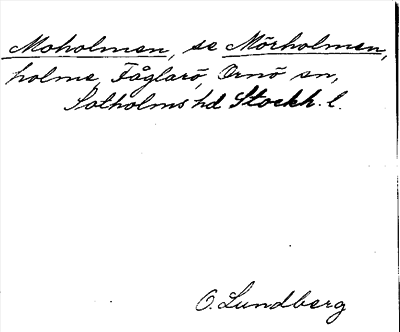 Moholmen, se Mörholmen,
holme, Fåglarö, Ornö sn,
Sotholms hd Stockh. l.
O. Lundberg